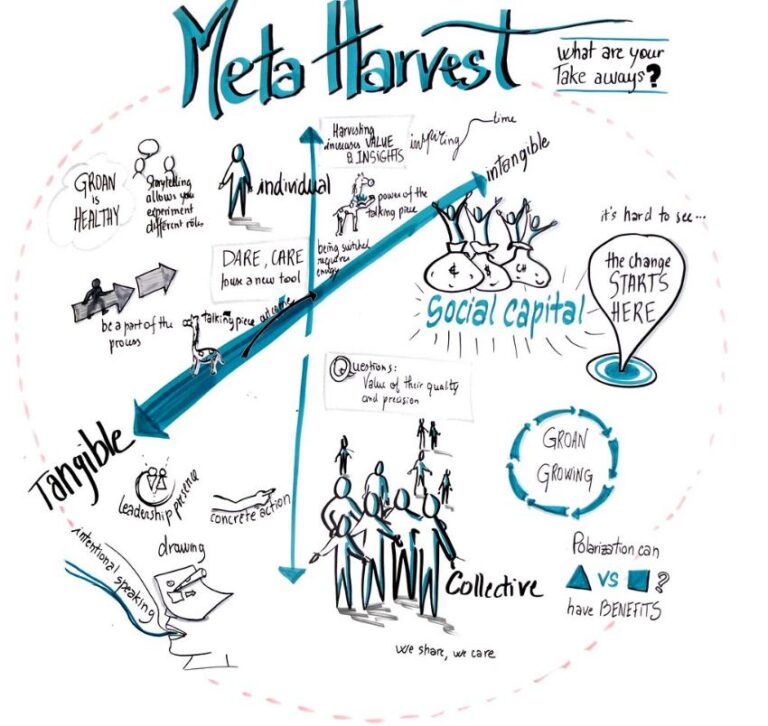 Meta Harvest
What are your
Take aways?
Harvesting
increases VALUE
& INSIGHTS
inspiring
time
intangible
GROAN
is
HEALTHY
Storytelling
allows you
experiment
different roles
individual
power of the
talking piece
DARE, CARE
a new tool
being switched
requires
energy
it's hard to see...
the change
STARTS
HERE
Social capital
be a part of the
process
talking piece
Questions:
Value of their quality
and precision
Tangible
leadership presence
concrete action
GROAN
GROWING
intentional speaking
drawing
Collective
Polarization can
VS
?
have BENEFITS
we share, we care